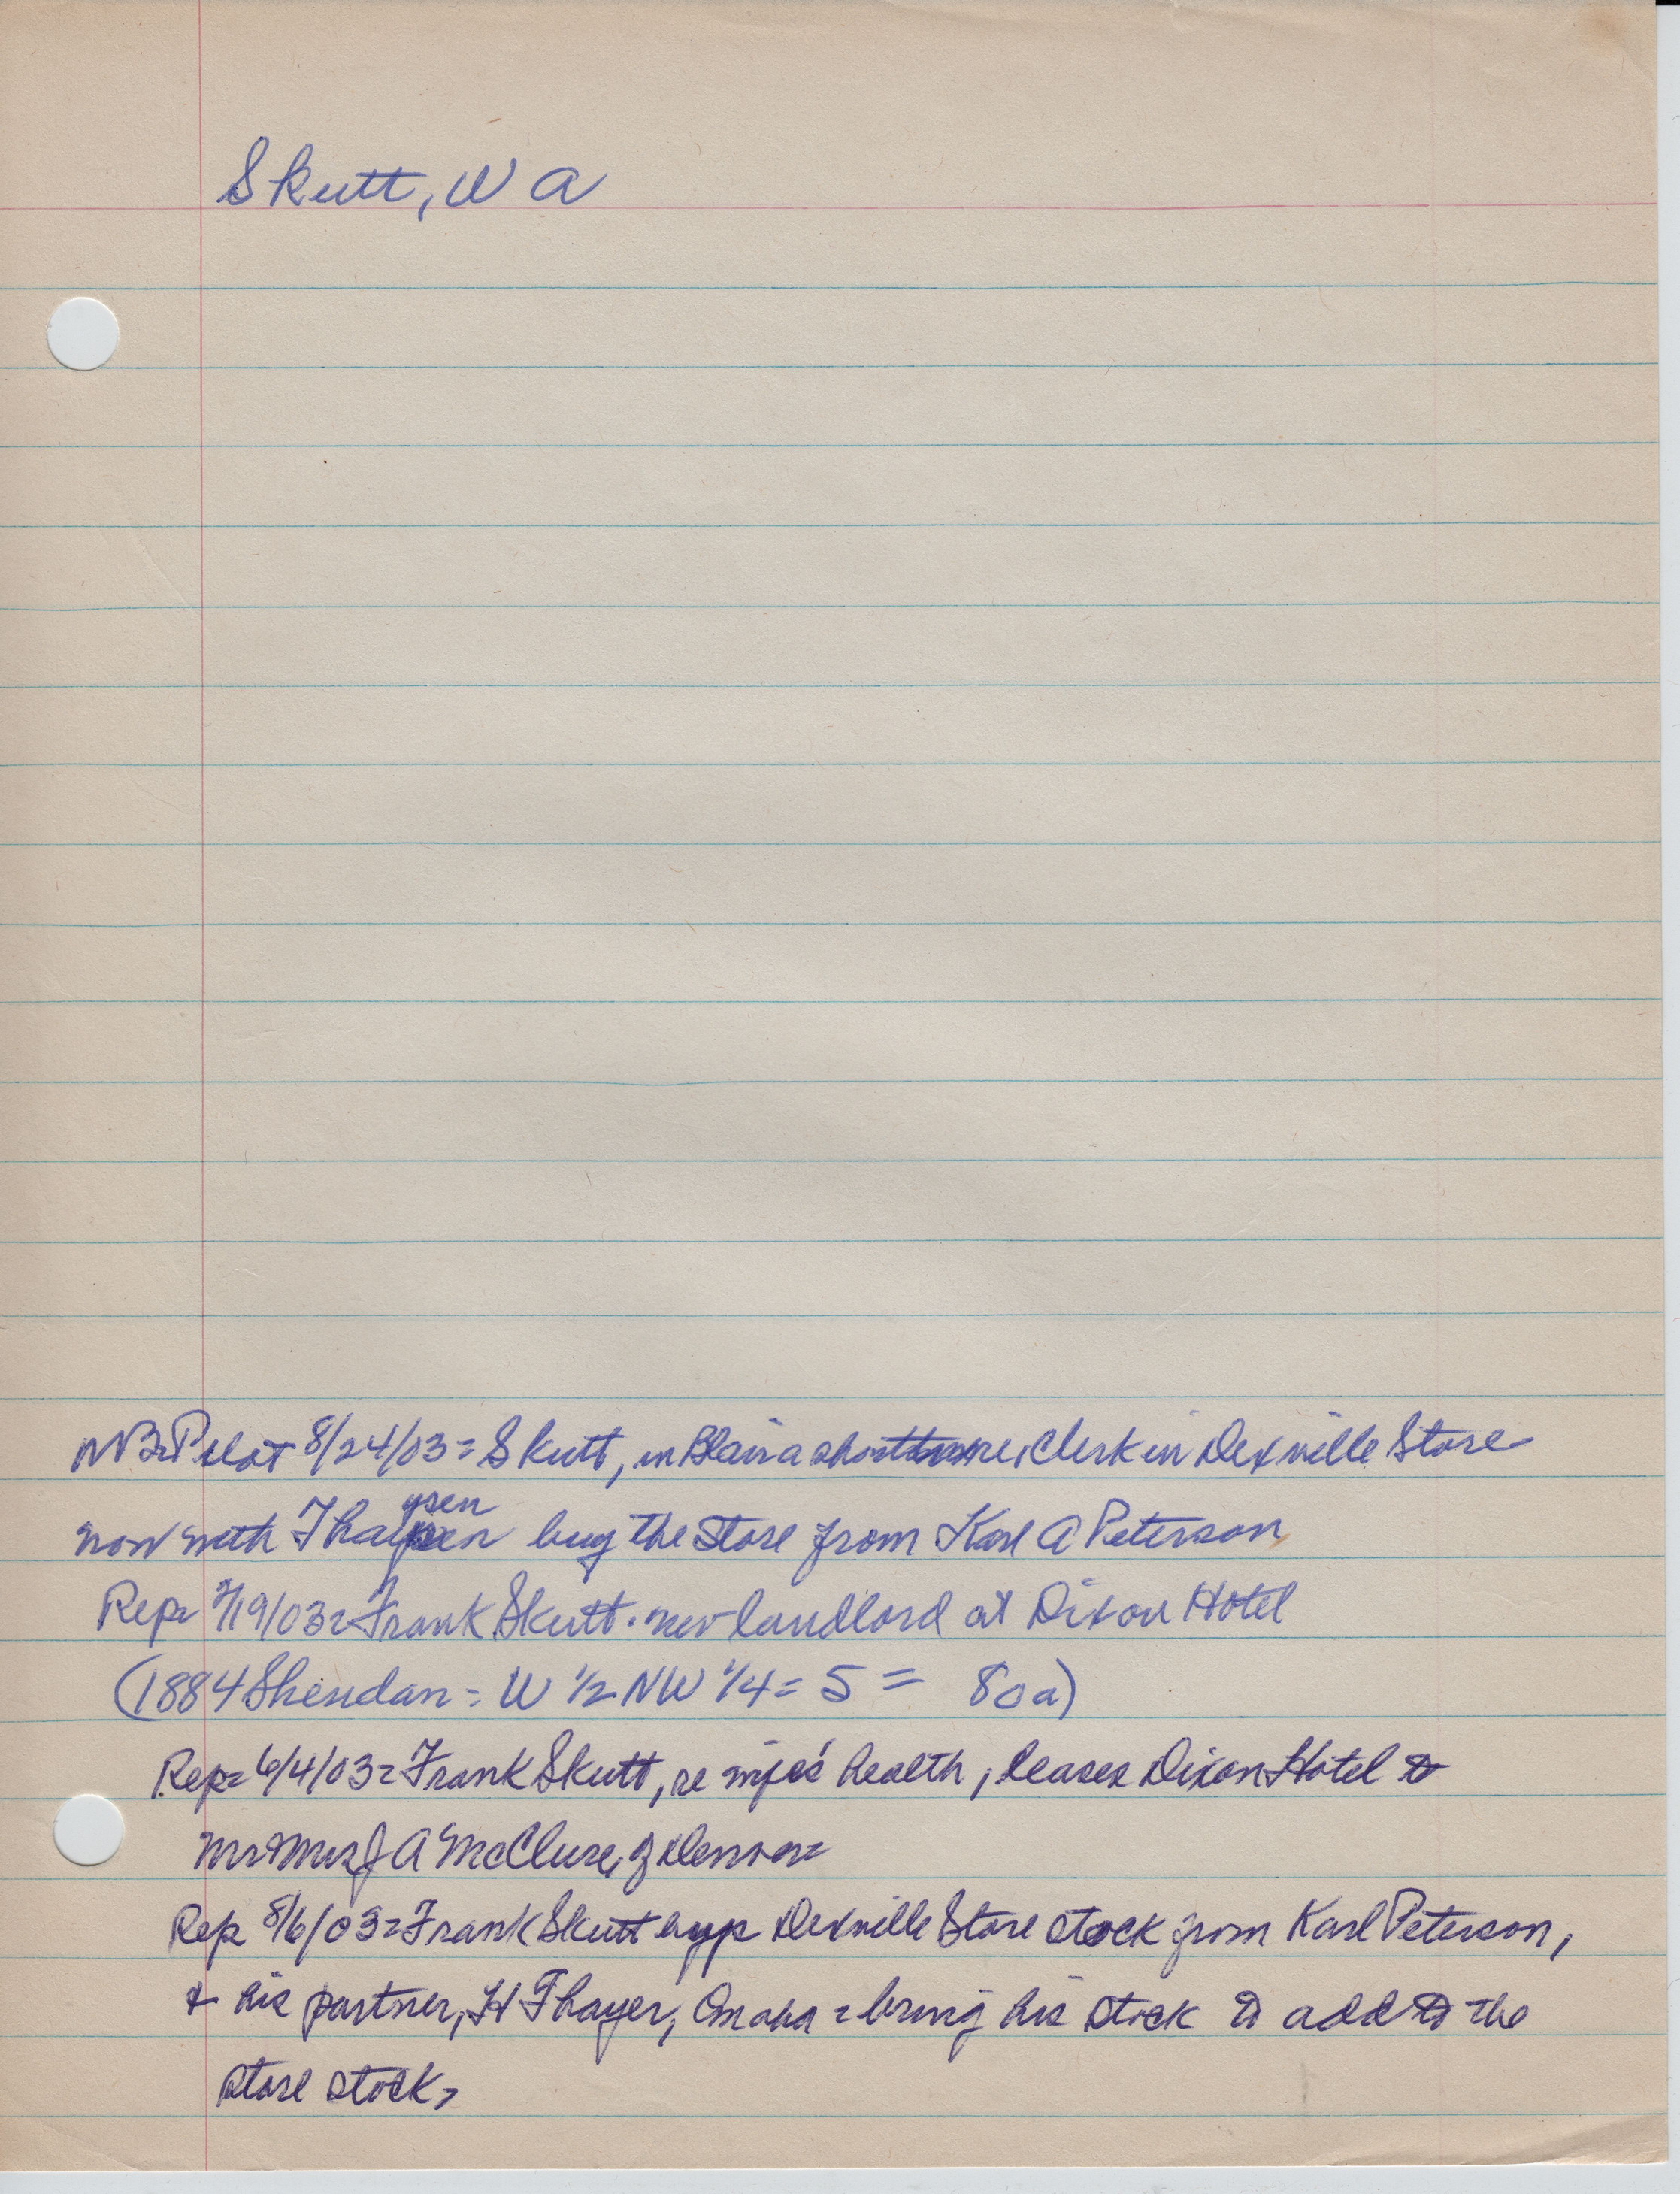 Skutt, W A
Pilot 8/24/03 = Skutt, in Blair a short time, Clerk in Dexville Store
now with Thaysen buy the store from Karl A Peterson
Rep= /19/03= Frank Skutt. new landlord at Dixon Hotel
(1884 Sheridan = W 1/2 NW 1/4 = 5 = 80a)
Rep= 6/4/03= Frank Skutt, re wife's health, leases Dixon Hotel to
Mr Mrs J A McClure, of Denver=
Rep 8/6/03= Frank Skutt buys Dexville Store stock from Karl Peterson,
& his partner, H Thayer, Omaha = bring his stock to add to the
store stock,